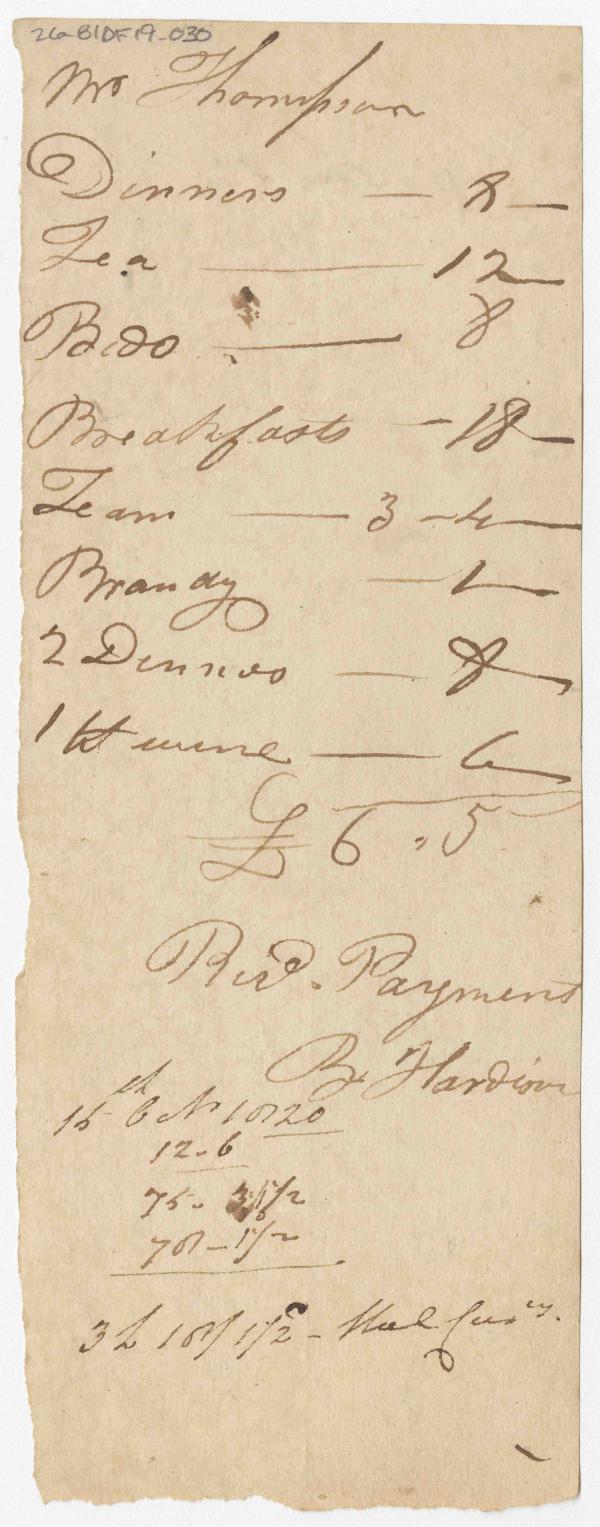 26-B1DF19-030
Mr Thompson
Dinners — 8 —
Tea — 12 —
Beds — 8
Breakfasts — 18 —
Team — 3 — 4 —
Brandy — 1 —
2 Dinners — 8 —
1 bt wine — 6 —
£ 6 . 5
Recd. Payment
B. Hardison
15th 1820
12 . 6
75 . 1/2
78 - 1/2
3 £ 18/ 1/2 -